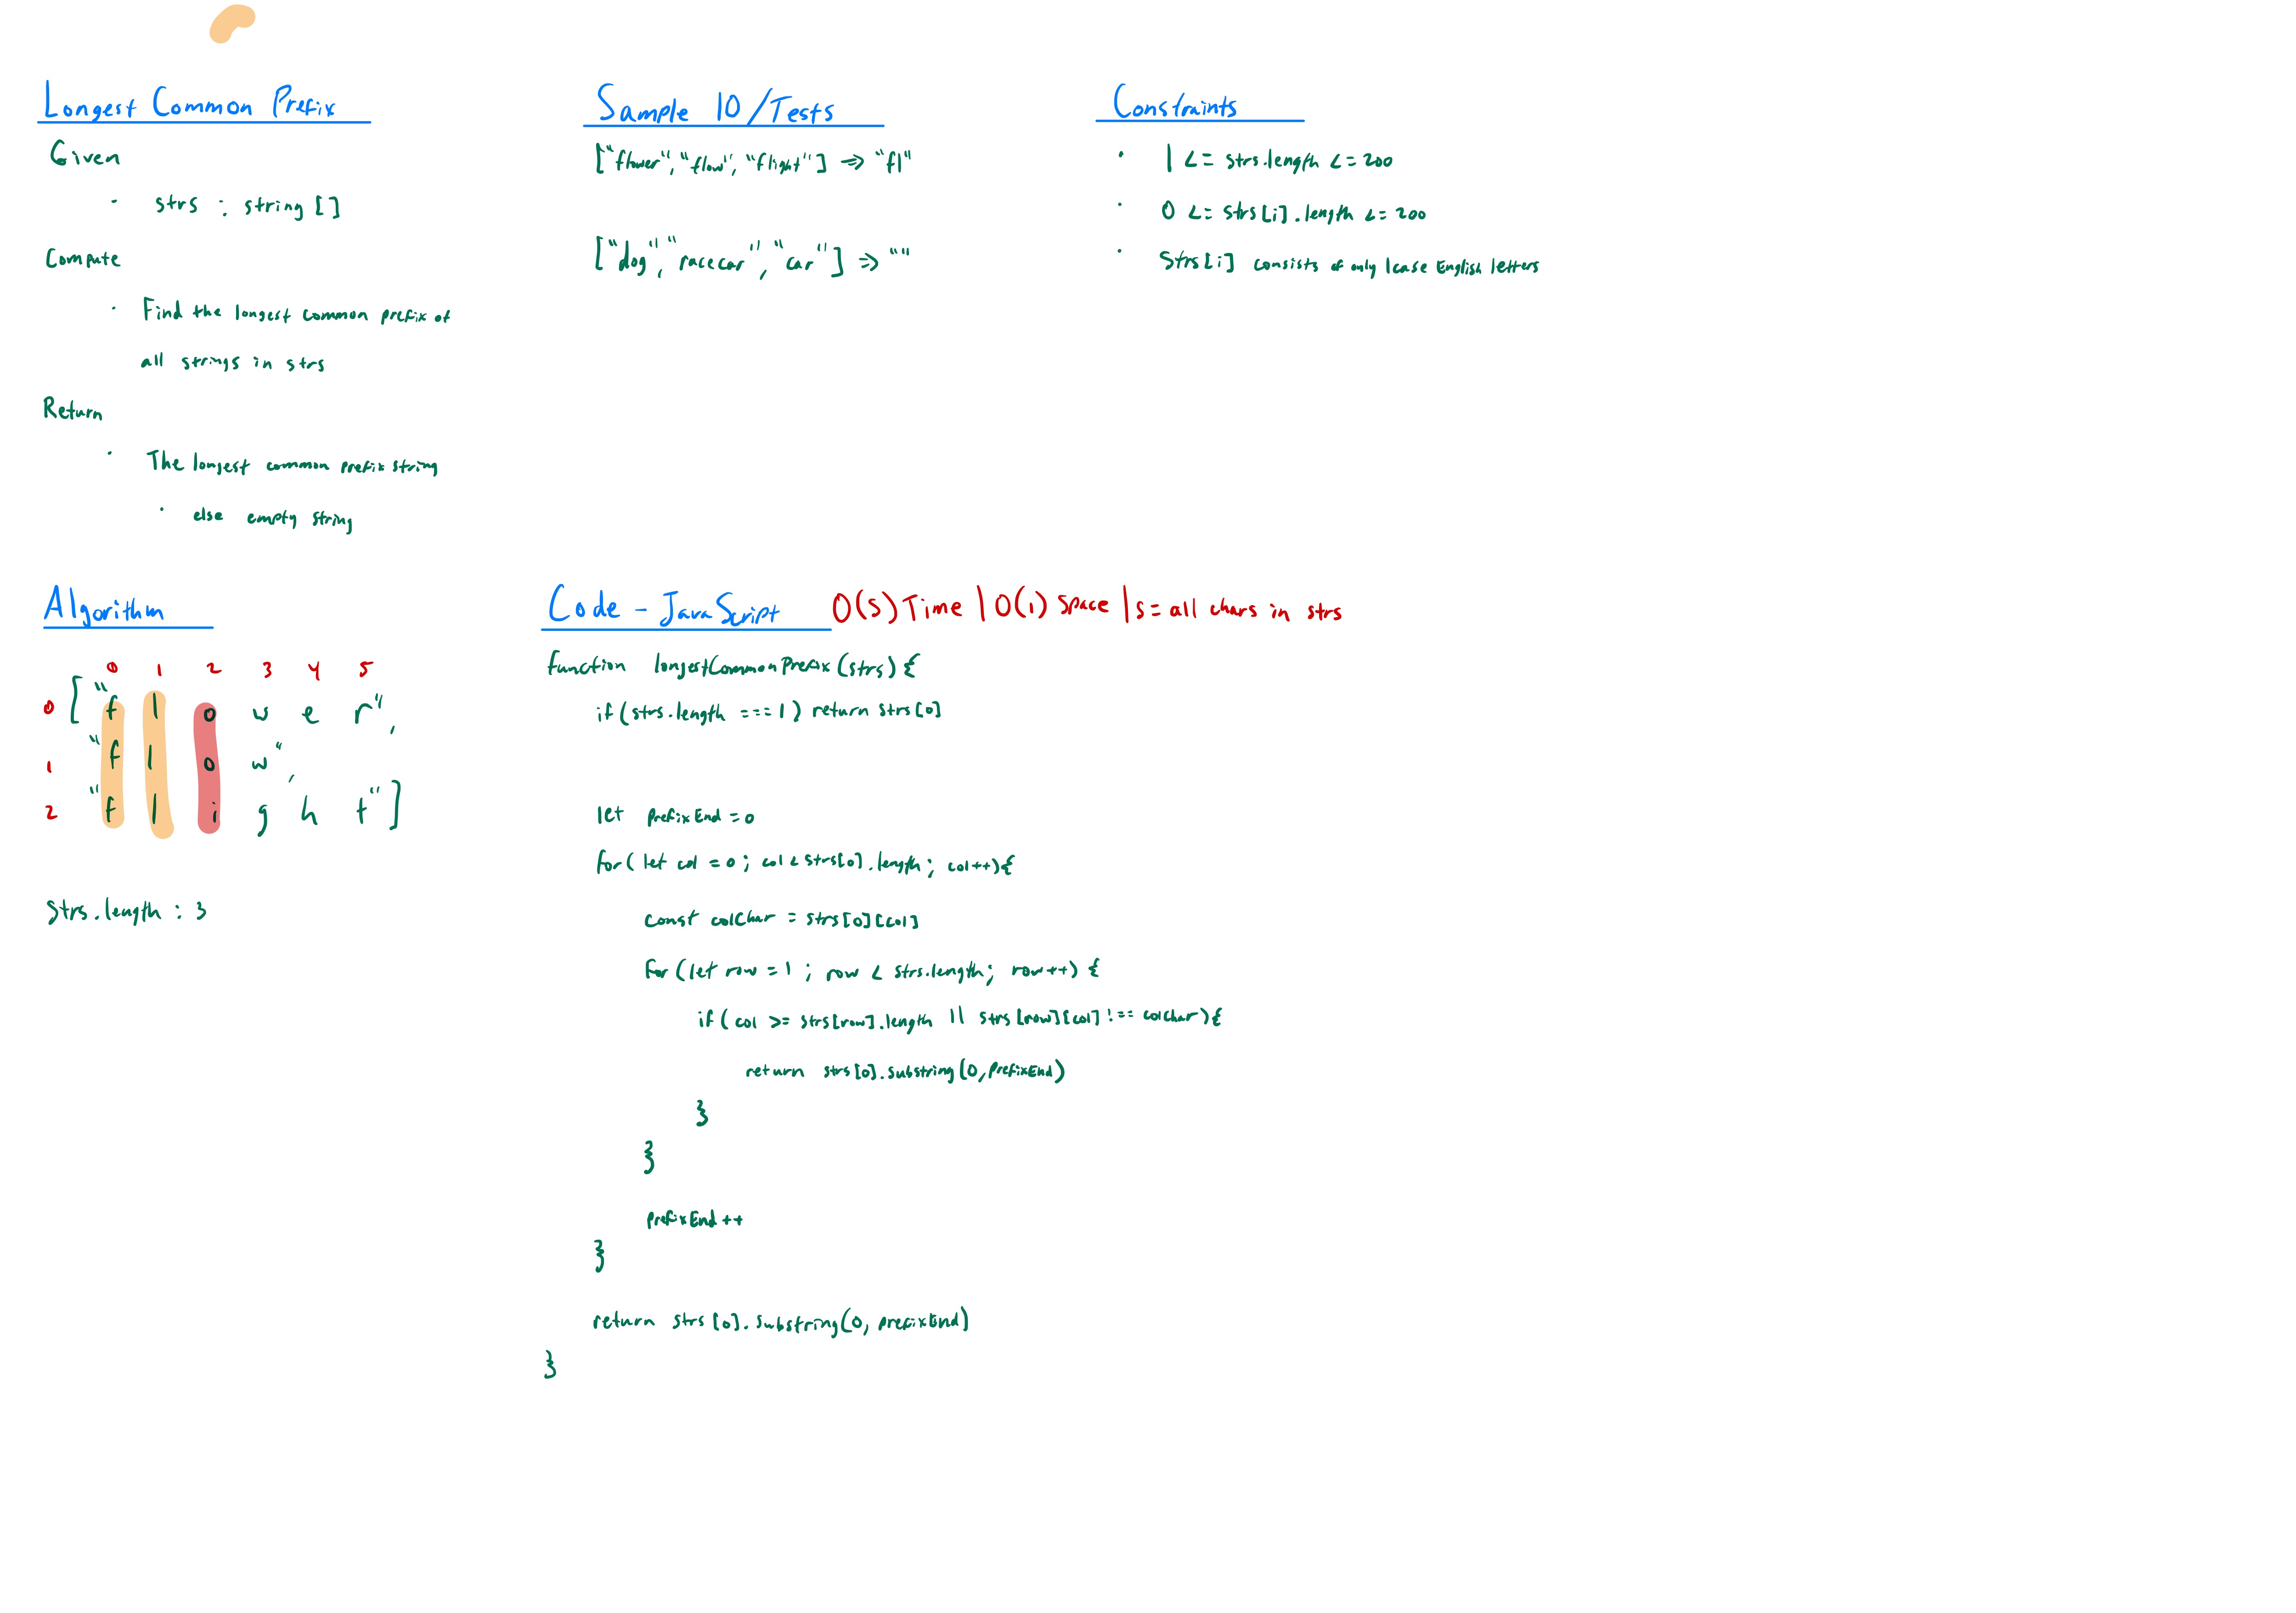 Longest Common Prefix
Given
· strs : string []
Compute
· Find the longest common prefix of
all strings in strs
Return
· The longest common prefix string
· else empty string
Sample IO/Tests
["flower", "flow", "flight"] => "fl"
["dog", "racecar", "car"] => ""
Constraints
· 1 <= strs.length <= 200
· 0 <= strs[i].length <= 200
· Strs[i] consists of only lcase English letters
Algorithm
0 1 2 3 4 5
0 ["f l o w e r",
1 "f l o w",
2 "f l i g h t"]
Strs.length : 3
Code - JavaScript O(S) Time | O(1) Space | s = all chars in strs
function longestCommonPrefix (strs) {
if (strs.length === 1) return strs[0]
let prefixEnd = 0
for ( let col = 0 ; col < strs[0].length ; col++){
const colChar = strs[0][col]
for (let row = 1 ; row < strs.length; row++) {
if ( col >= strs[row].length || strs[row][col] !== colChar){
return strs[0].substring(0, prefixEnd)
}
}
prefixEnd++
}
return strs[0].substring(0, prefixEnd)
}